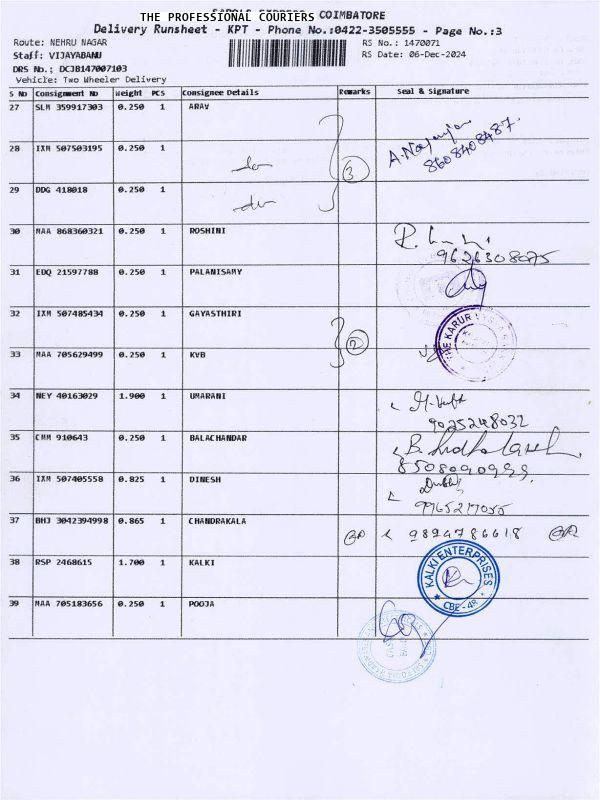 THE PROFESSIONAL COURIERS COIMBATORE
Delivery Runsheet - KPT - Phone No.:0422-3505555 - Page No.:3
Route: NEHRU NAGAR RS No.: 1470071
Staff: VIJAYABANU RS Date: 06-Dec-2024
DRS No.: DCJB147007103
Vehicle: Two Wheeler Delivery
S No Consignment No Weight PCS Consignee Details Remarks Seal & Signature
27 SLM 359917303 0.250 1 ARAV
28 IXM 507503195 0.250 1 3 8608408487
29 DDG 418018 0.250 1
30 MAA 868360321 0.250 1 ROSHINI
9626308075
31 EDQ 21597788 0.250 1 PALANISAMY
32 IXM 507485434 0.250 1 GAYASTHIRI
2
33 MAA 705629499 0.250 1 KVB
34 NEY 40163029 1.900 1 UMARANI
9025248032
35 CMM 910643 0.250 1 BALACHANDAR
36 IXM 507405558 0.825 1 DINESH
37 BHJ 3042394998 0.865 1 CHANDRAKALA
9894786618
38 RSP 2468615 1.700 1 KALKI
KALKI ENTERPRISES
CBE-48
39 MAA 705183656 0.250 1 POOJA